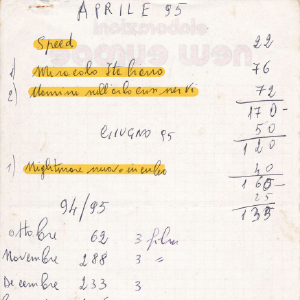 APRILE 95
Speed 22
1) Miracolo Italiano 76
2) Mamma nell'elo con nervi 72
170-
50
GIUGNO 95 120
1) Nightmare nuovo incubo 40
160-
25
94/95 135
ottobre 62 3 films
Novembre 288 3 "
Decembre 233 3